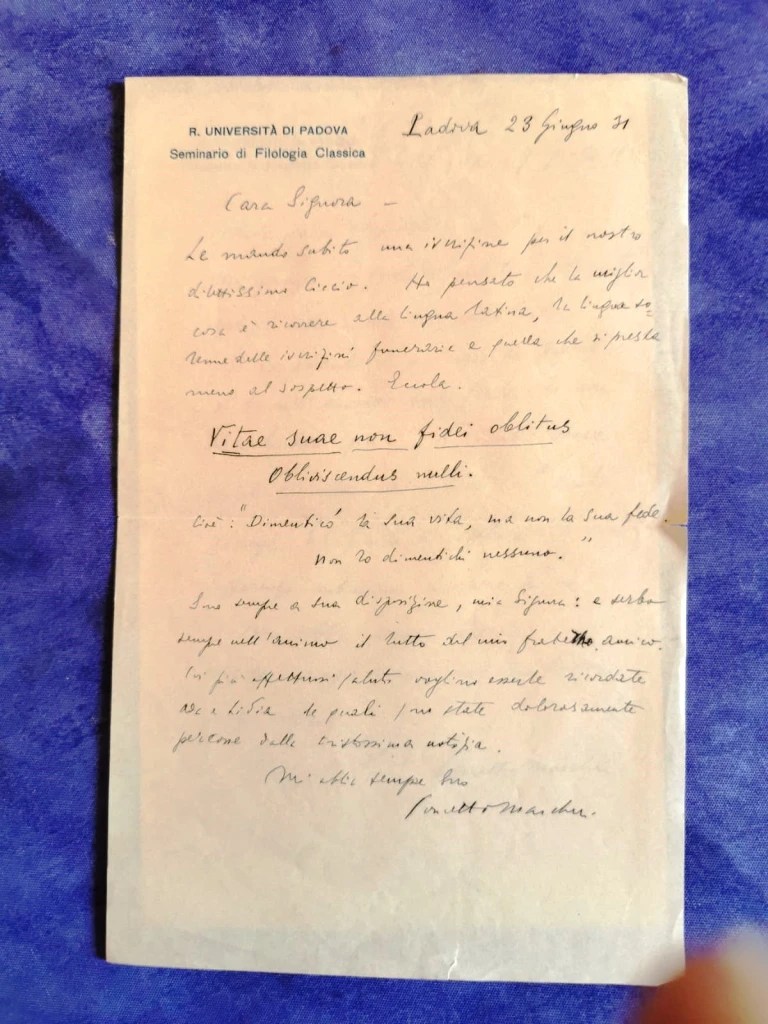 R. UNIVERSITÀ DI PADOVA
Seminario di Filologia Classica
Padova 23 Giugno 31
Cara Signora —
Le mando subito una iscrizione per il nostro
dilettissimo Ciccio. Ho pensato che la miglior
cosa è ricorrere alla lingua latina, la lingua so=
lenne delle iscrizioni funerarie e quella che si presta
meno al sospetto. Eccola.
Vitae suae non fidei oblitus
Obliviscendus nulli.
Cioè: "Dimenticò la sua vita, ma non la sua fede.
Non lo dimentichi nessuno."
Sono sempre a sua disposizione, mia Signora: e serbo
sempre nell'animo il lutto del mio fratello amico.
I più affettuosi saluti vogliono esserle ricordate
Ada e Lidia le quali sono state dolorosamente
percosse dalla tristissima notizia.
Mi abbia sempre Suo
Concetto Marchesi.